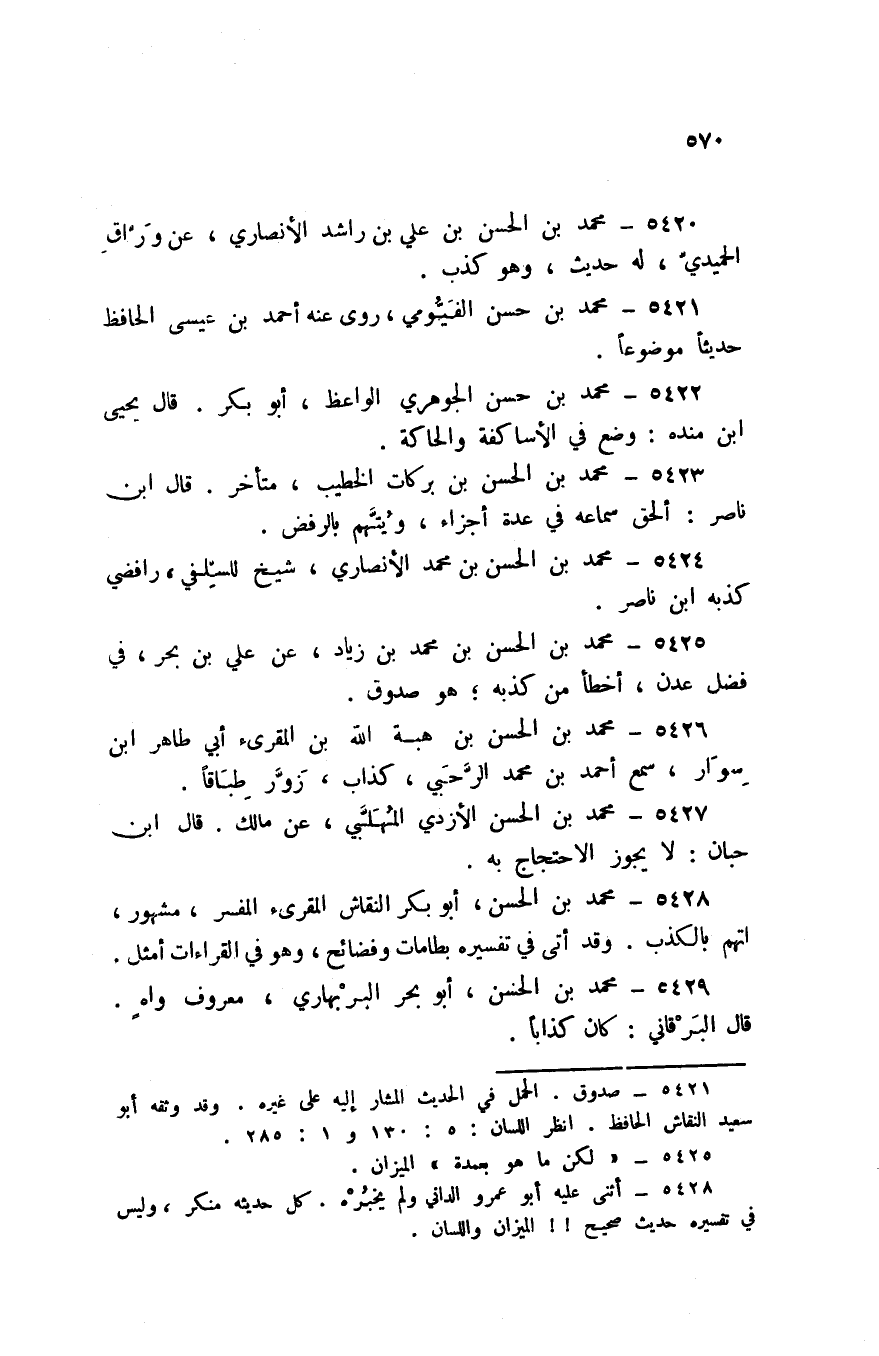 ٥٧٠
٥٤٢٠ – محمد بن الحسن بن علي بن راشد الأنصاري ، عن وَرَّاقِ
الحميديّ ، له حديث ، وهو كذب .
٥٤٢١ – محمد بن حسن الفَيُّومي ، روى عنه أحمد بن عيسى الحافظ
حديثاً موضوعاً .
٥٤٢٢ – محمد بن حسن الجوهري الواعظ ، أبو بكر . قال يحيى
ابن منده : وضع في الأساكفة والحاكة .
٥٤٢٣ – محمد بن الحسن بن بركات الخطيب ، متأخر . قال ابن
ناصر : ألحق سماعه في عدة أجزاء ، ويُتَّهم بالرفض .
٥٤٢٤ – محمد بن الحسن بن محمد الأنصاري ، شيخ للسِّلفي ، رافضي
كذبه ابن ناصر .
٥٤٢٥ – محمد بن الحسن بن محمد بن زياد ، عن علي بن بحر ، في
فضل عدن ، أخطأ من كذبه ؛ هو صدوق .
٥٤٢٦ – محمد بن الحسن بن هبة الله بن المقرىء أبي طاهر ابن
سِوَار ، سمع أحمد بن محمد الرَّحَبي ، كذاب ، زوَّر طِبَاقاً .
٥٤٢٧ – محمد بن الحسن الأزدي المُهَلَّبي ، عن مالك . قال ابن
حبان : لا يجوز الاحتجاج به .
٥٤٢٨ – محمد بن الحسن ، أبو بكر النقاش المقرىء المفسر ، مشهور ،
اتهم بالكذب . وقد أتى في تفسيره بطامات وفضائح ، وهو في القراءات أمثل .
٥٤٢٩ – محمد بن الحسن ، أبو بحر البرْبهاري ، معروف واهٍ .
قال البَرْقاني : كان كذاباً .
٥٤٢١ – صدوق . الحمل في الحديث المشار إليه على غيره . وقد وثقه أبو
سعيد النقاش الحافظ . انظر اللسان : ٥ : ١٣٠ و ١ : ٢٨٥ .
٥٤٢٥ – « لكن ما هو بعمدة » الميزان .
٥٤٢٨ – أثنى عليه أبو عمرو الداني ولم يخبُرْه . كل حديثه منكر ، وليس
في تفسيره حديث صحيح !! الميزان واللسان .